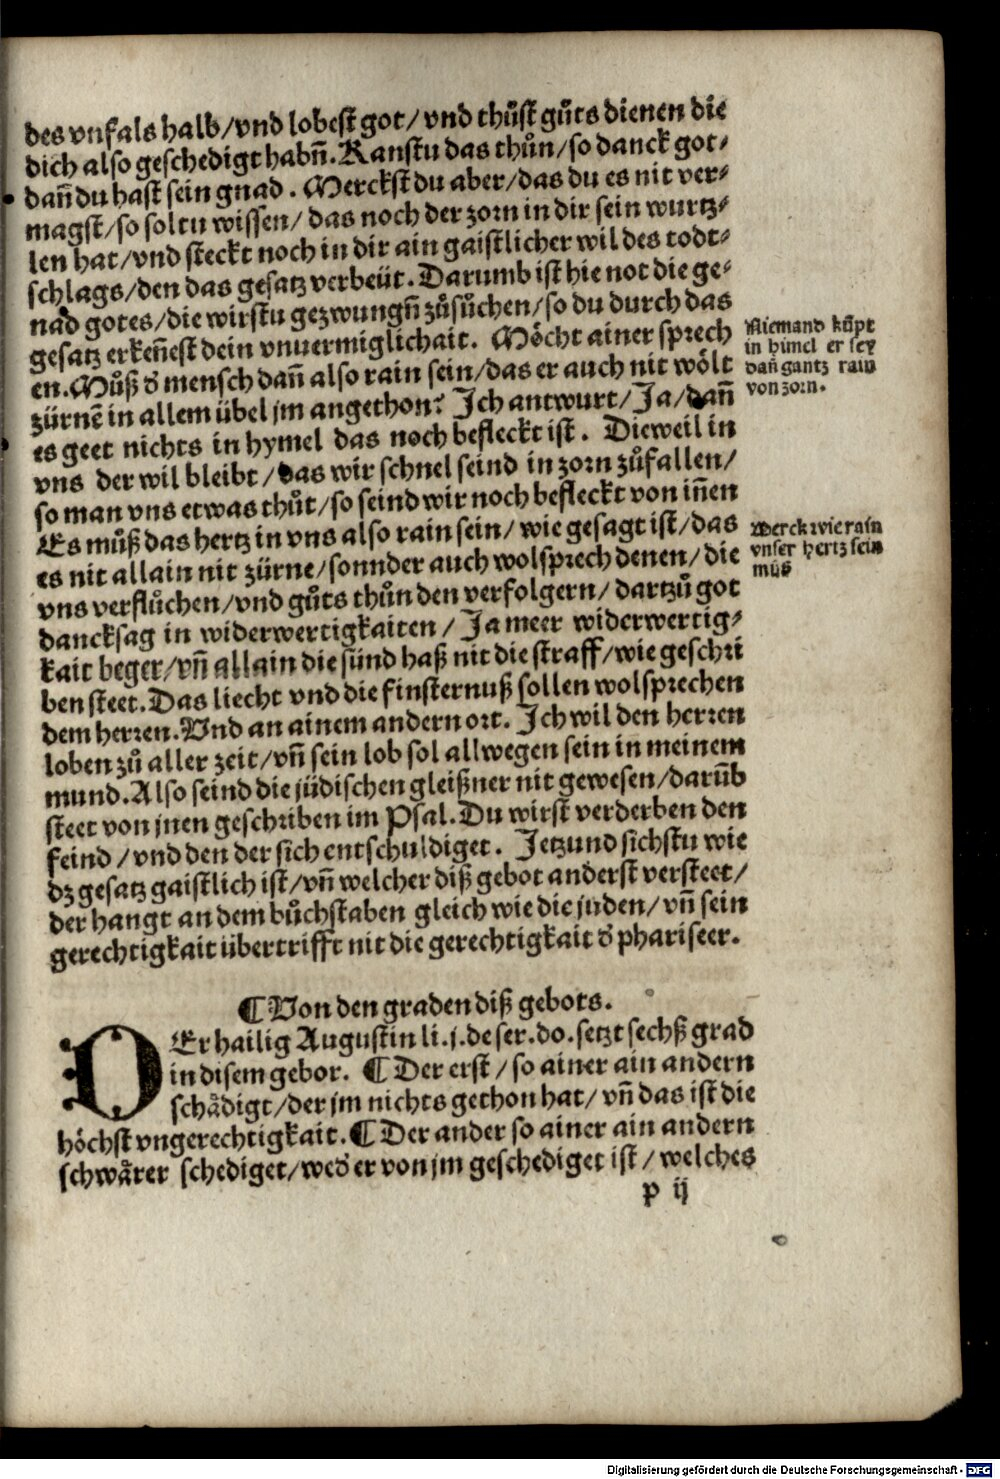 des vnfals halb/vnd lobest got/vnd thůst gůts dienen die
dich also geschedigt habñ. Kanstu das thůn/so danck got⸗
dañ du hast sein gnad. Merckst du aber/das du es nit ver⸗
magst/so soltu wissen/das noch der zorn in dir sein wurtz⸗
len hat/vnd steckt noch in dir ain gaistlicher wil des todt⸗
schlags/den das gesatz verbeüt. Darumb ist hie not die ge⸗
nad gotes/die wirstu gezwungñ zůsůchen/so du durch das
gesatz erkeñest dein vnuermiglichait. Möcht ainer sprech
en. Můß d' mensch dañ also rain sein/das er auch nit wölt
zürnē in allem übel jm angethon? Ich antwurt/Ja/dañ
es geet nichts in hymel das noch befleckt ist. Dieweil in
vns der wil bleibt/das wir schnel seind in zorn zůfallen/
so man vns etwas thůt/so seind wir noch befleckt von iñen
Es můß das hertz in vns also rain sein/wie gesagt ist/das
es nit allain nit zürne/sonnder auch wolsprech denen/die
vns verflůchen/vnd gůts thůn den verfolgern/dartzů got
dancksag in widerwertigkaiten/Ja meer widerwertig⸗
kait beger/vñ allain die sünd haß nit die straff/wie geschri
ben steet. Das liecht vnd die finsternuß sollen wolsprechen
dem herren. Vnd an ainem andern ort. Ich wil den herren
loben zů aller zeit/vñ sein lob sol allwegen sein in meinem
mund. Also seind die jüdischen gleißner nit gewesen/darūb
steet von jnen geschriben im Psal. Du wirst verderben den
feind/vnd den der sich entschuldiget. Jetzund sichstu wie
dz gesatz gaistlich ist/vñ welcher diß gebot anderst versteet/
der hangt an dem bůchstaben gleich wie die juden/vñ sein
gerechtigkait übertrifft nit die gerechtigkait d' phariseer.
Niemand kūpt
in himel er sey
dañ gantz rain
von zorn.
Merck wie rain
vnser hertz sein
můß
¶ Von den graden diß gebots.
DEr hailig Augustin li. j. de ser. do. setzt sechß grad
in disem gebot. ¶ Der erst/so ainer ain andern
schädigt/der jm nichts gethon hat/vñ das ist die
höchst vngerechtigkait. ¶ Der ander so ainer ain andern
schwärer schediget/wed' er von jm geschediget ist/welches
p ij
Digitalisierung gefördert durch die Deutsche Forschungsgemeinschaft - DFG